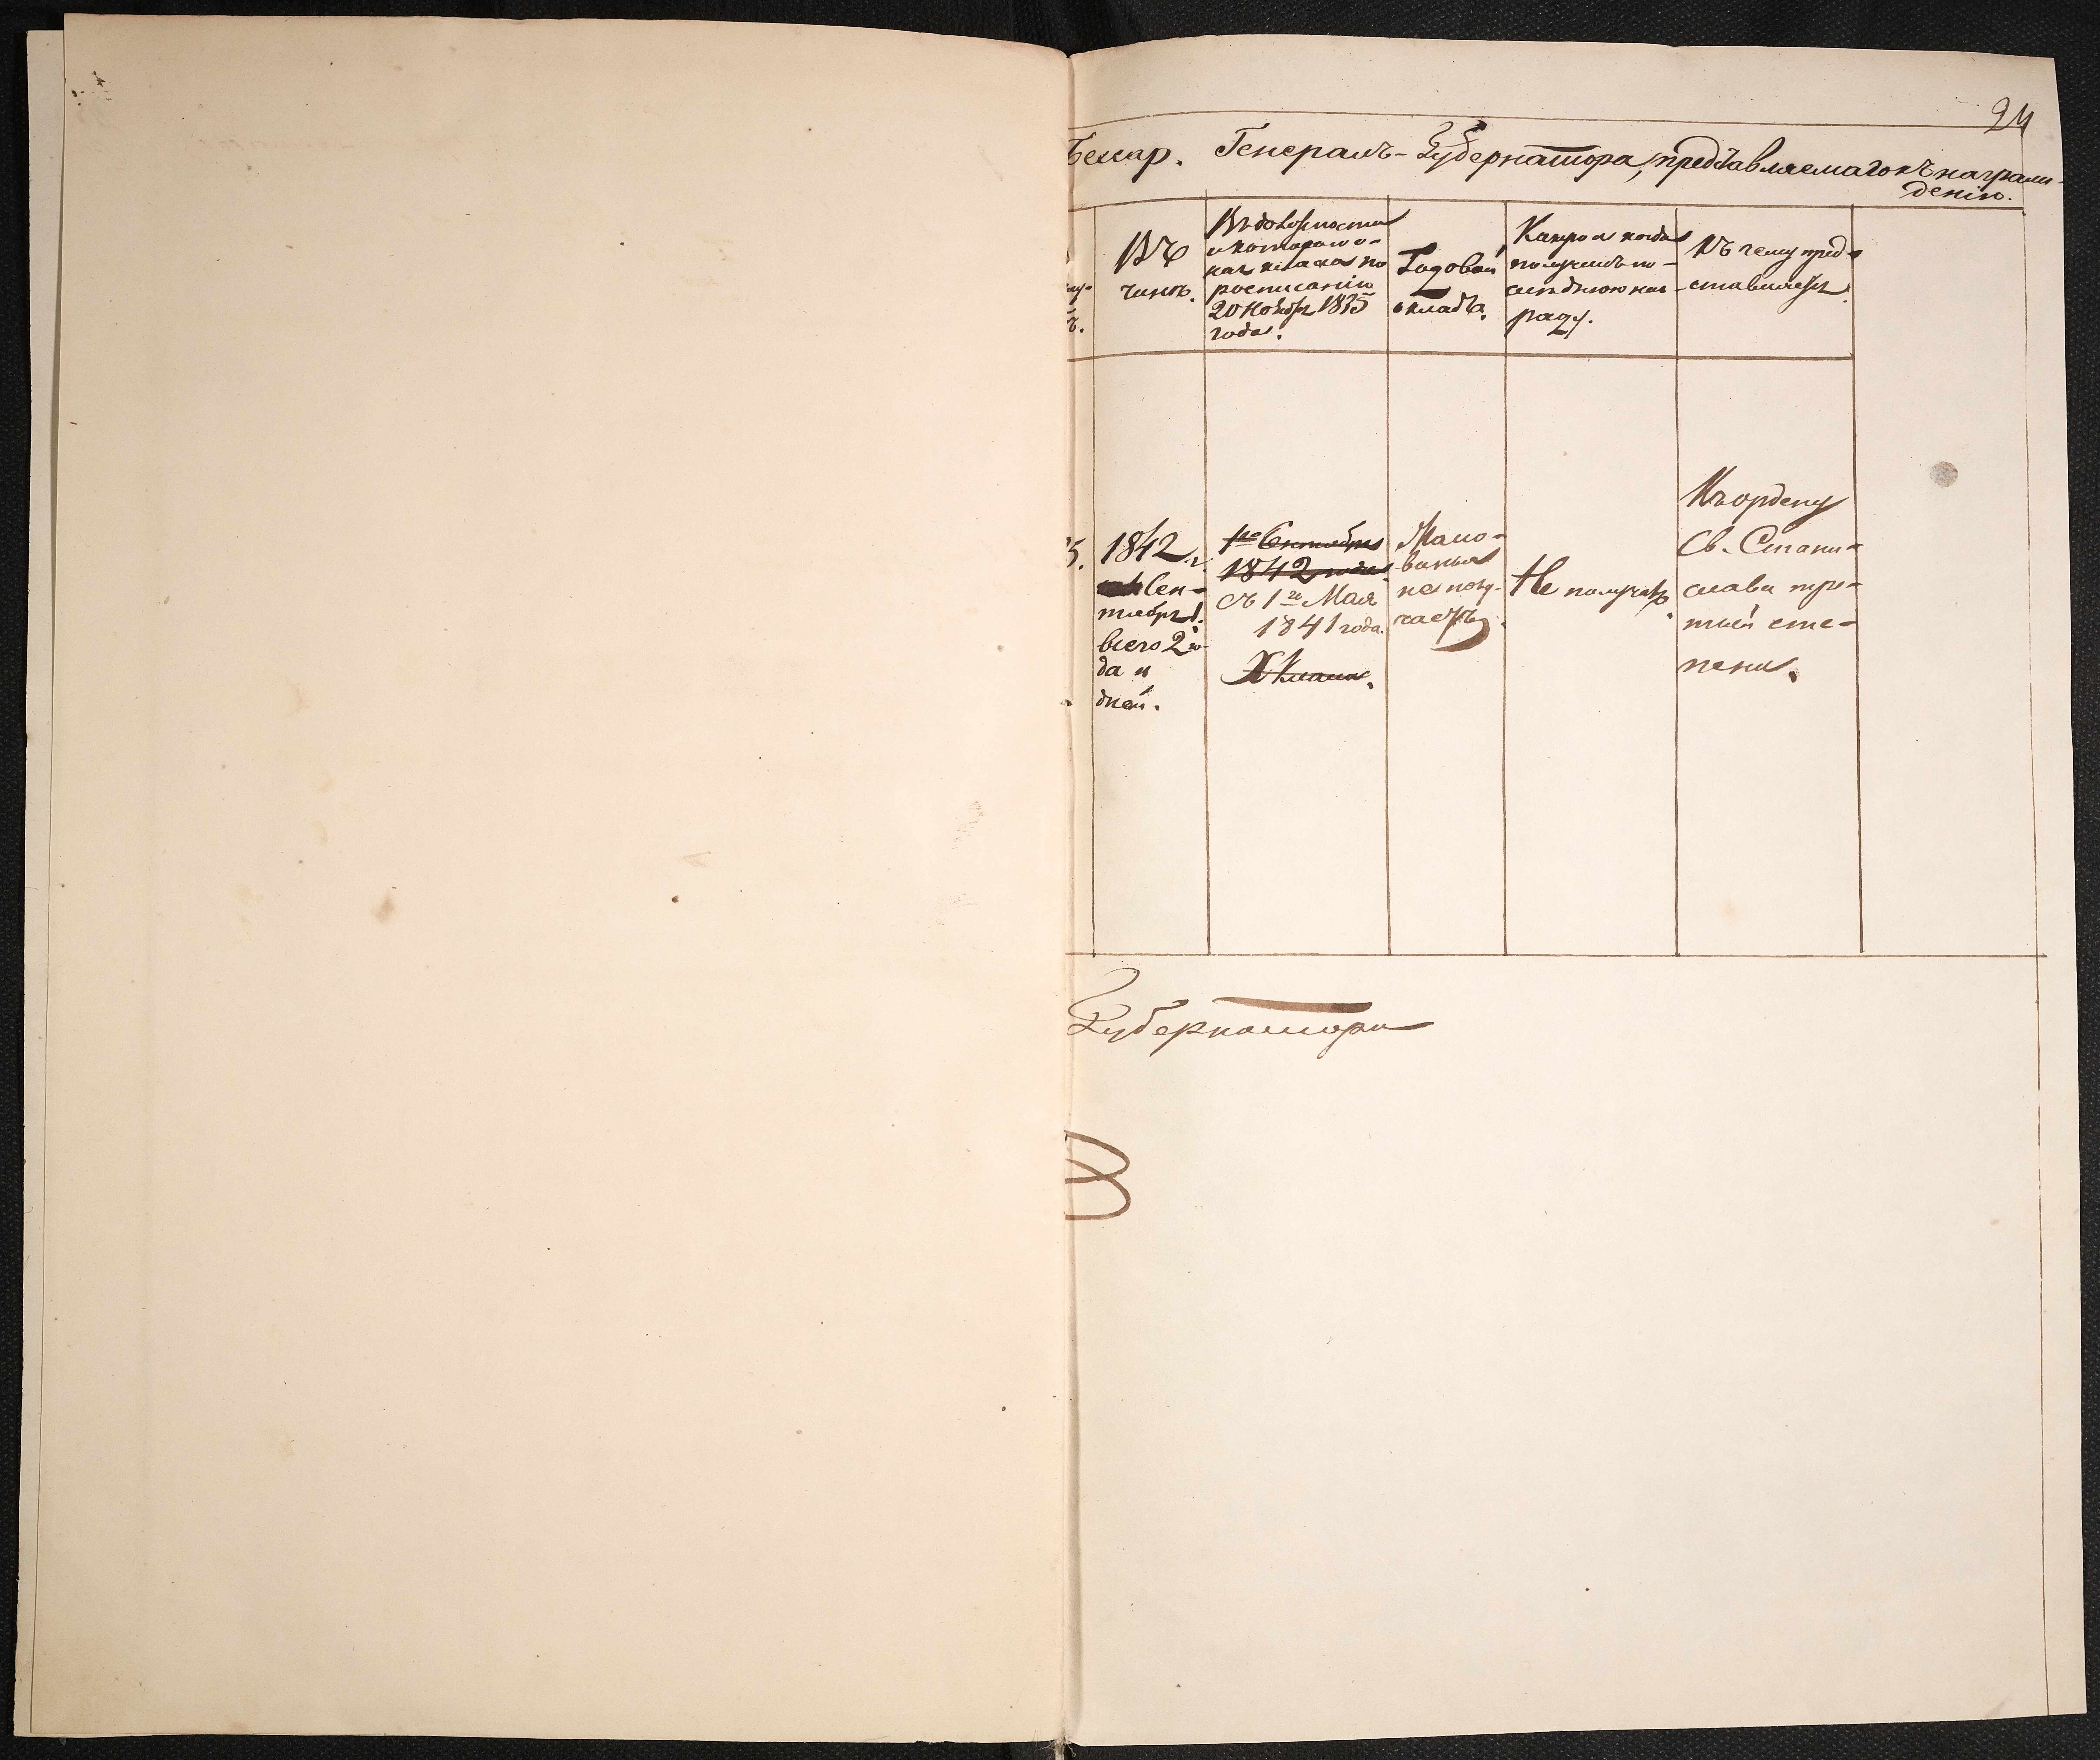 24
Бессар. Генералъ-Губернатора, представляемаго къ награж-
денію.
Въ
чинѣ.
Въ должности
и котораго о-
ная класса по
росписанію
20 Ноября 1835
года.
Годовой
окладъ.
Какую и когда
получилъ по-
слѣднюю наг-
раду.
Къ чему пред-
ставляется.
5.
1842 г.
Сен-
тября 1.
всего 2 го-
да и
дней.
1го Сентября
1842 года
съ 1го Мая
1841 года.
X класса.
Жало-
ванья
не полу-
чаетъ.
Не получалъ.
Къ ордену
Св. Стани-
слава тре-
тьей сте-
пени.
Губернатора